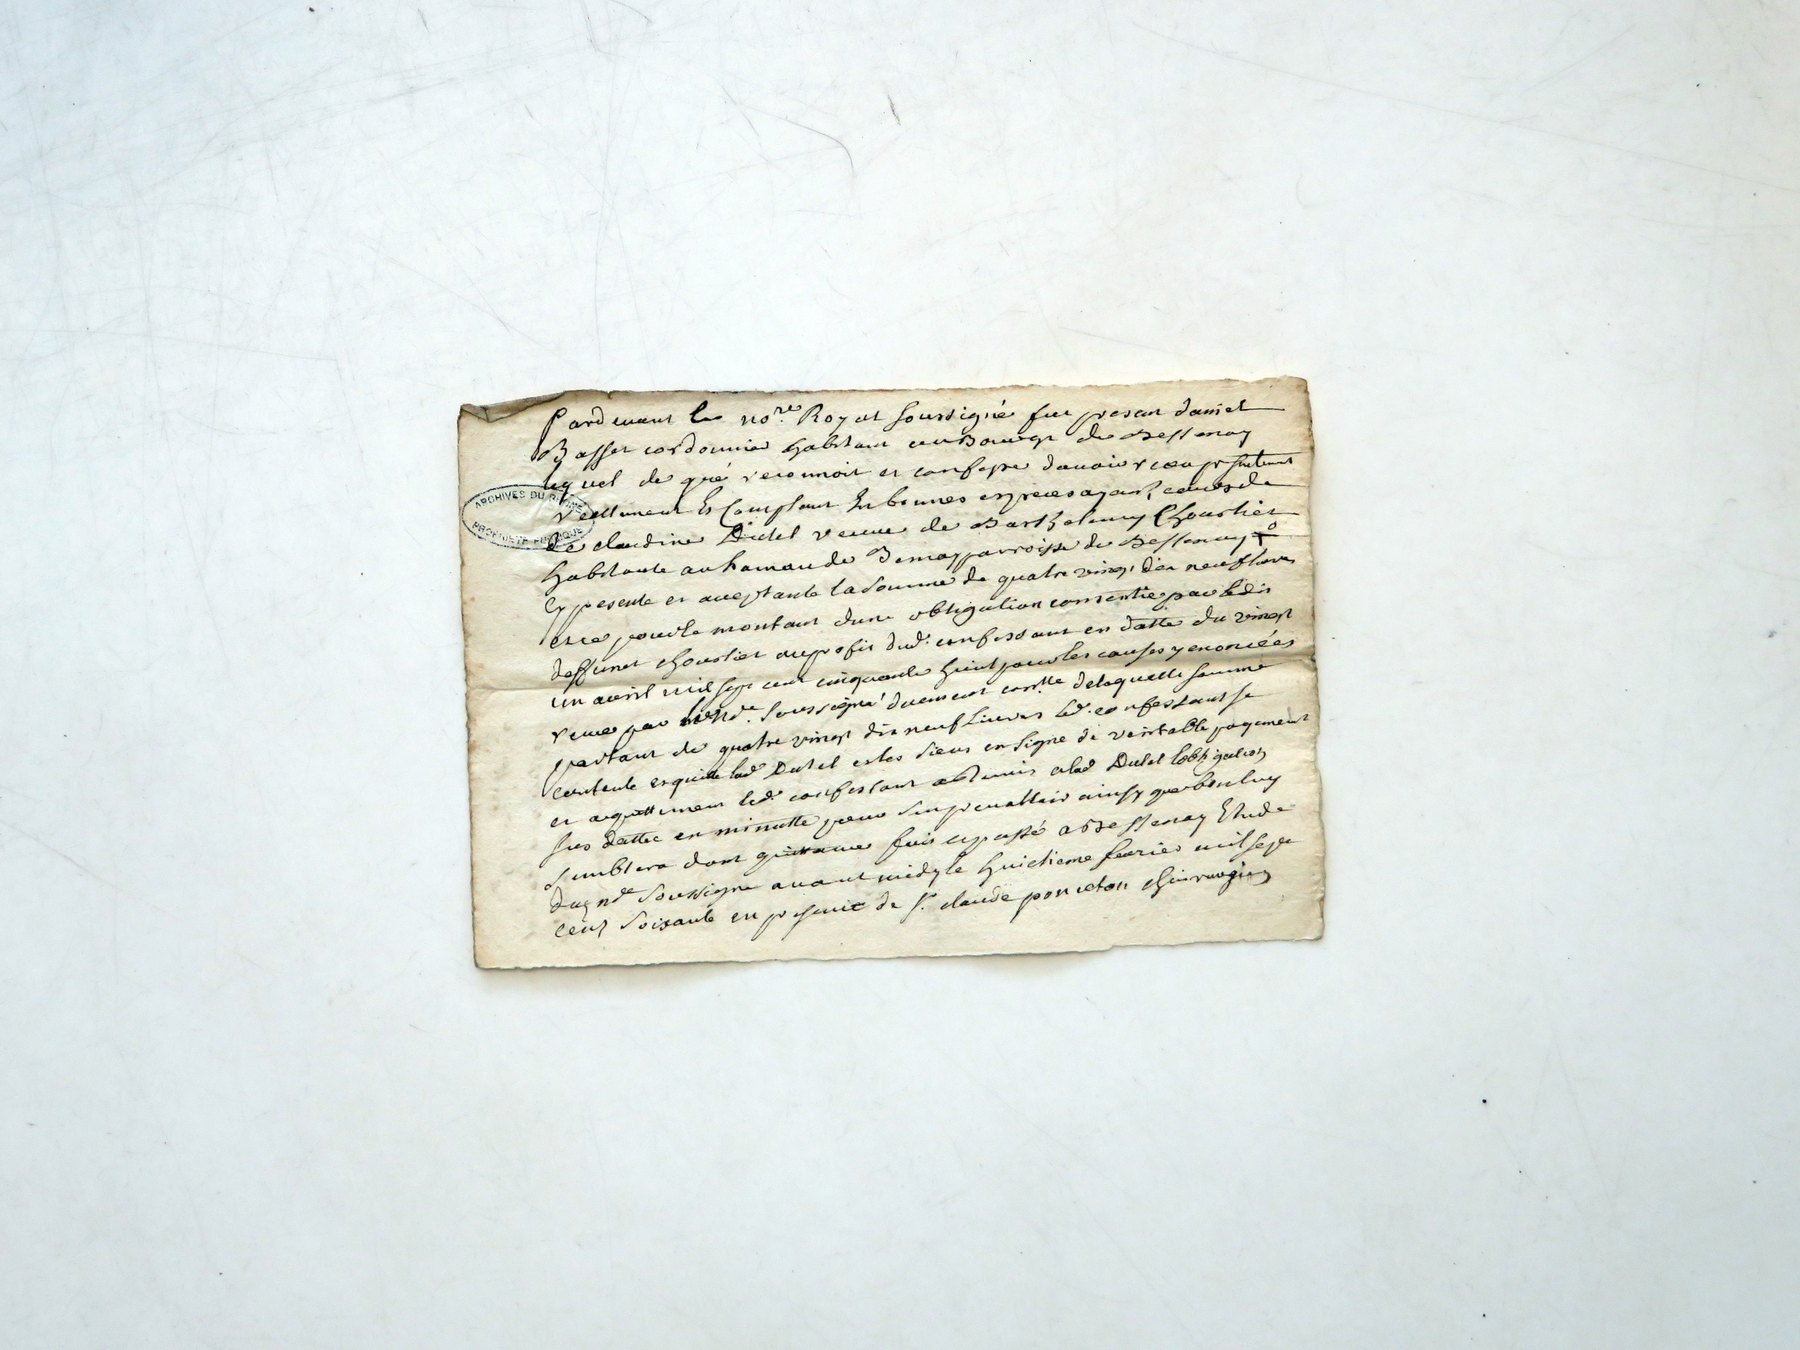 Pardevant le no.re Royal soussigné fut present daniel
Basset cordonnier habitant au Bourg de Bessenay
lequel de gré reconnoit et confesse davoir receu presentement
reellement Et Comptant En bonnes especes ayant cours de
de claudine Dutel veuve de Barthelemy Choustier
habitante au hameau de parroisse de Bessenay
Cy presente et acceptante la somme de quatre vingt dix neuf livres
et ce pour le montant dune obligation consentie par ledit
deffunct choustier au profit dud. confessant en datte du vingt
un avril mil sept cent cinquante huit pour les causes y enoncées
receue par le nd.e soussigné duement con.llé de laquelle somme
partant de quatre vingt dix neuf Livres led. confessant se
contente en quitte lad.e Dutel et les siens en signe de veritable payement
et aquittement led. confessant a Remis a lad Dutel lobligation
sus dattée en minutte pour sen prevalloir ainsy que bon luy
semblera dont quittance fait et passé a Bessenay Etude
du nd.e soussigné avant midy le huictieme fevrier mil sept
cent soixante en presence de s.r claude poncton chirurgien
ARCHIVES DU RHÔNE
PROPRIÉTÉ PUBLIQUE